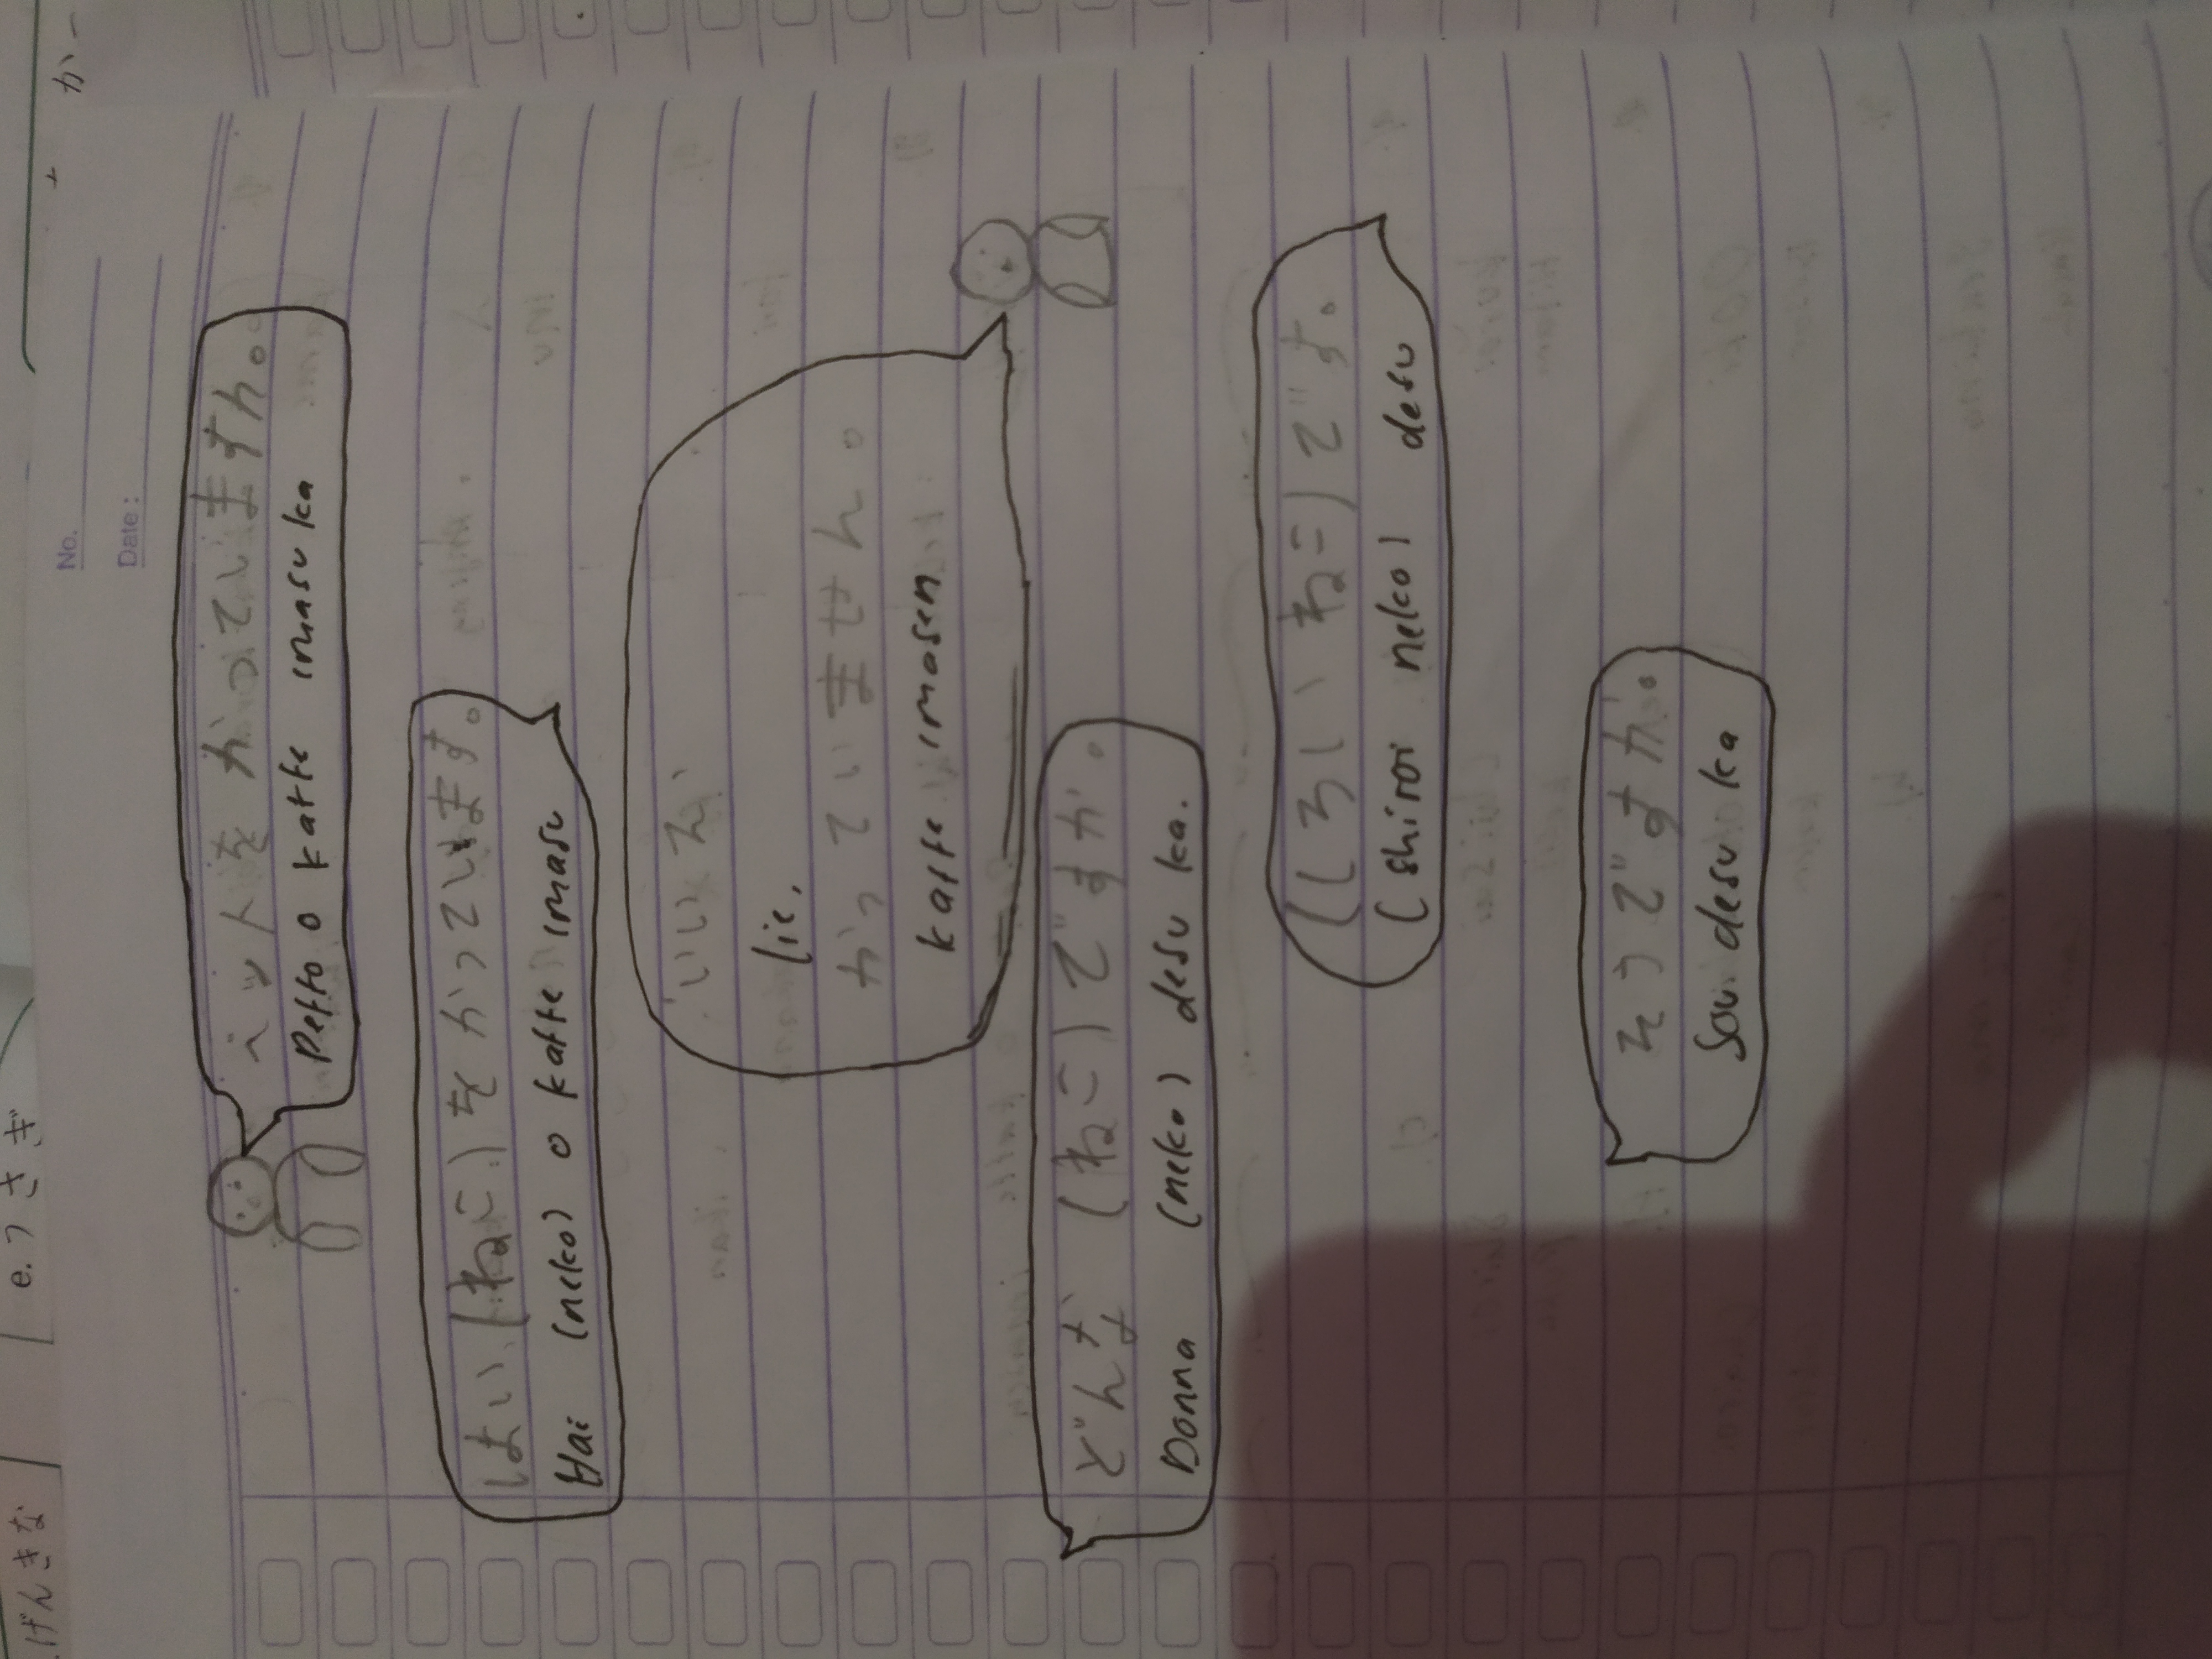 .げんきな
e. うさぎ
か
No.
Date :
ペットを かっていますん。
Petto o katte imasu ka
はい, (ねこ) を かっています。
Hai (neko) o katte imasu
いいえ、
Iie,
かっていません。
katte imasen
どんな (ねこ) ですか。
Donna (neko) desu ka.
(しろい ねこ) です。
(shiroi neko) desu
そうですか。
Sou desu ka